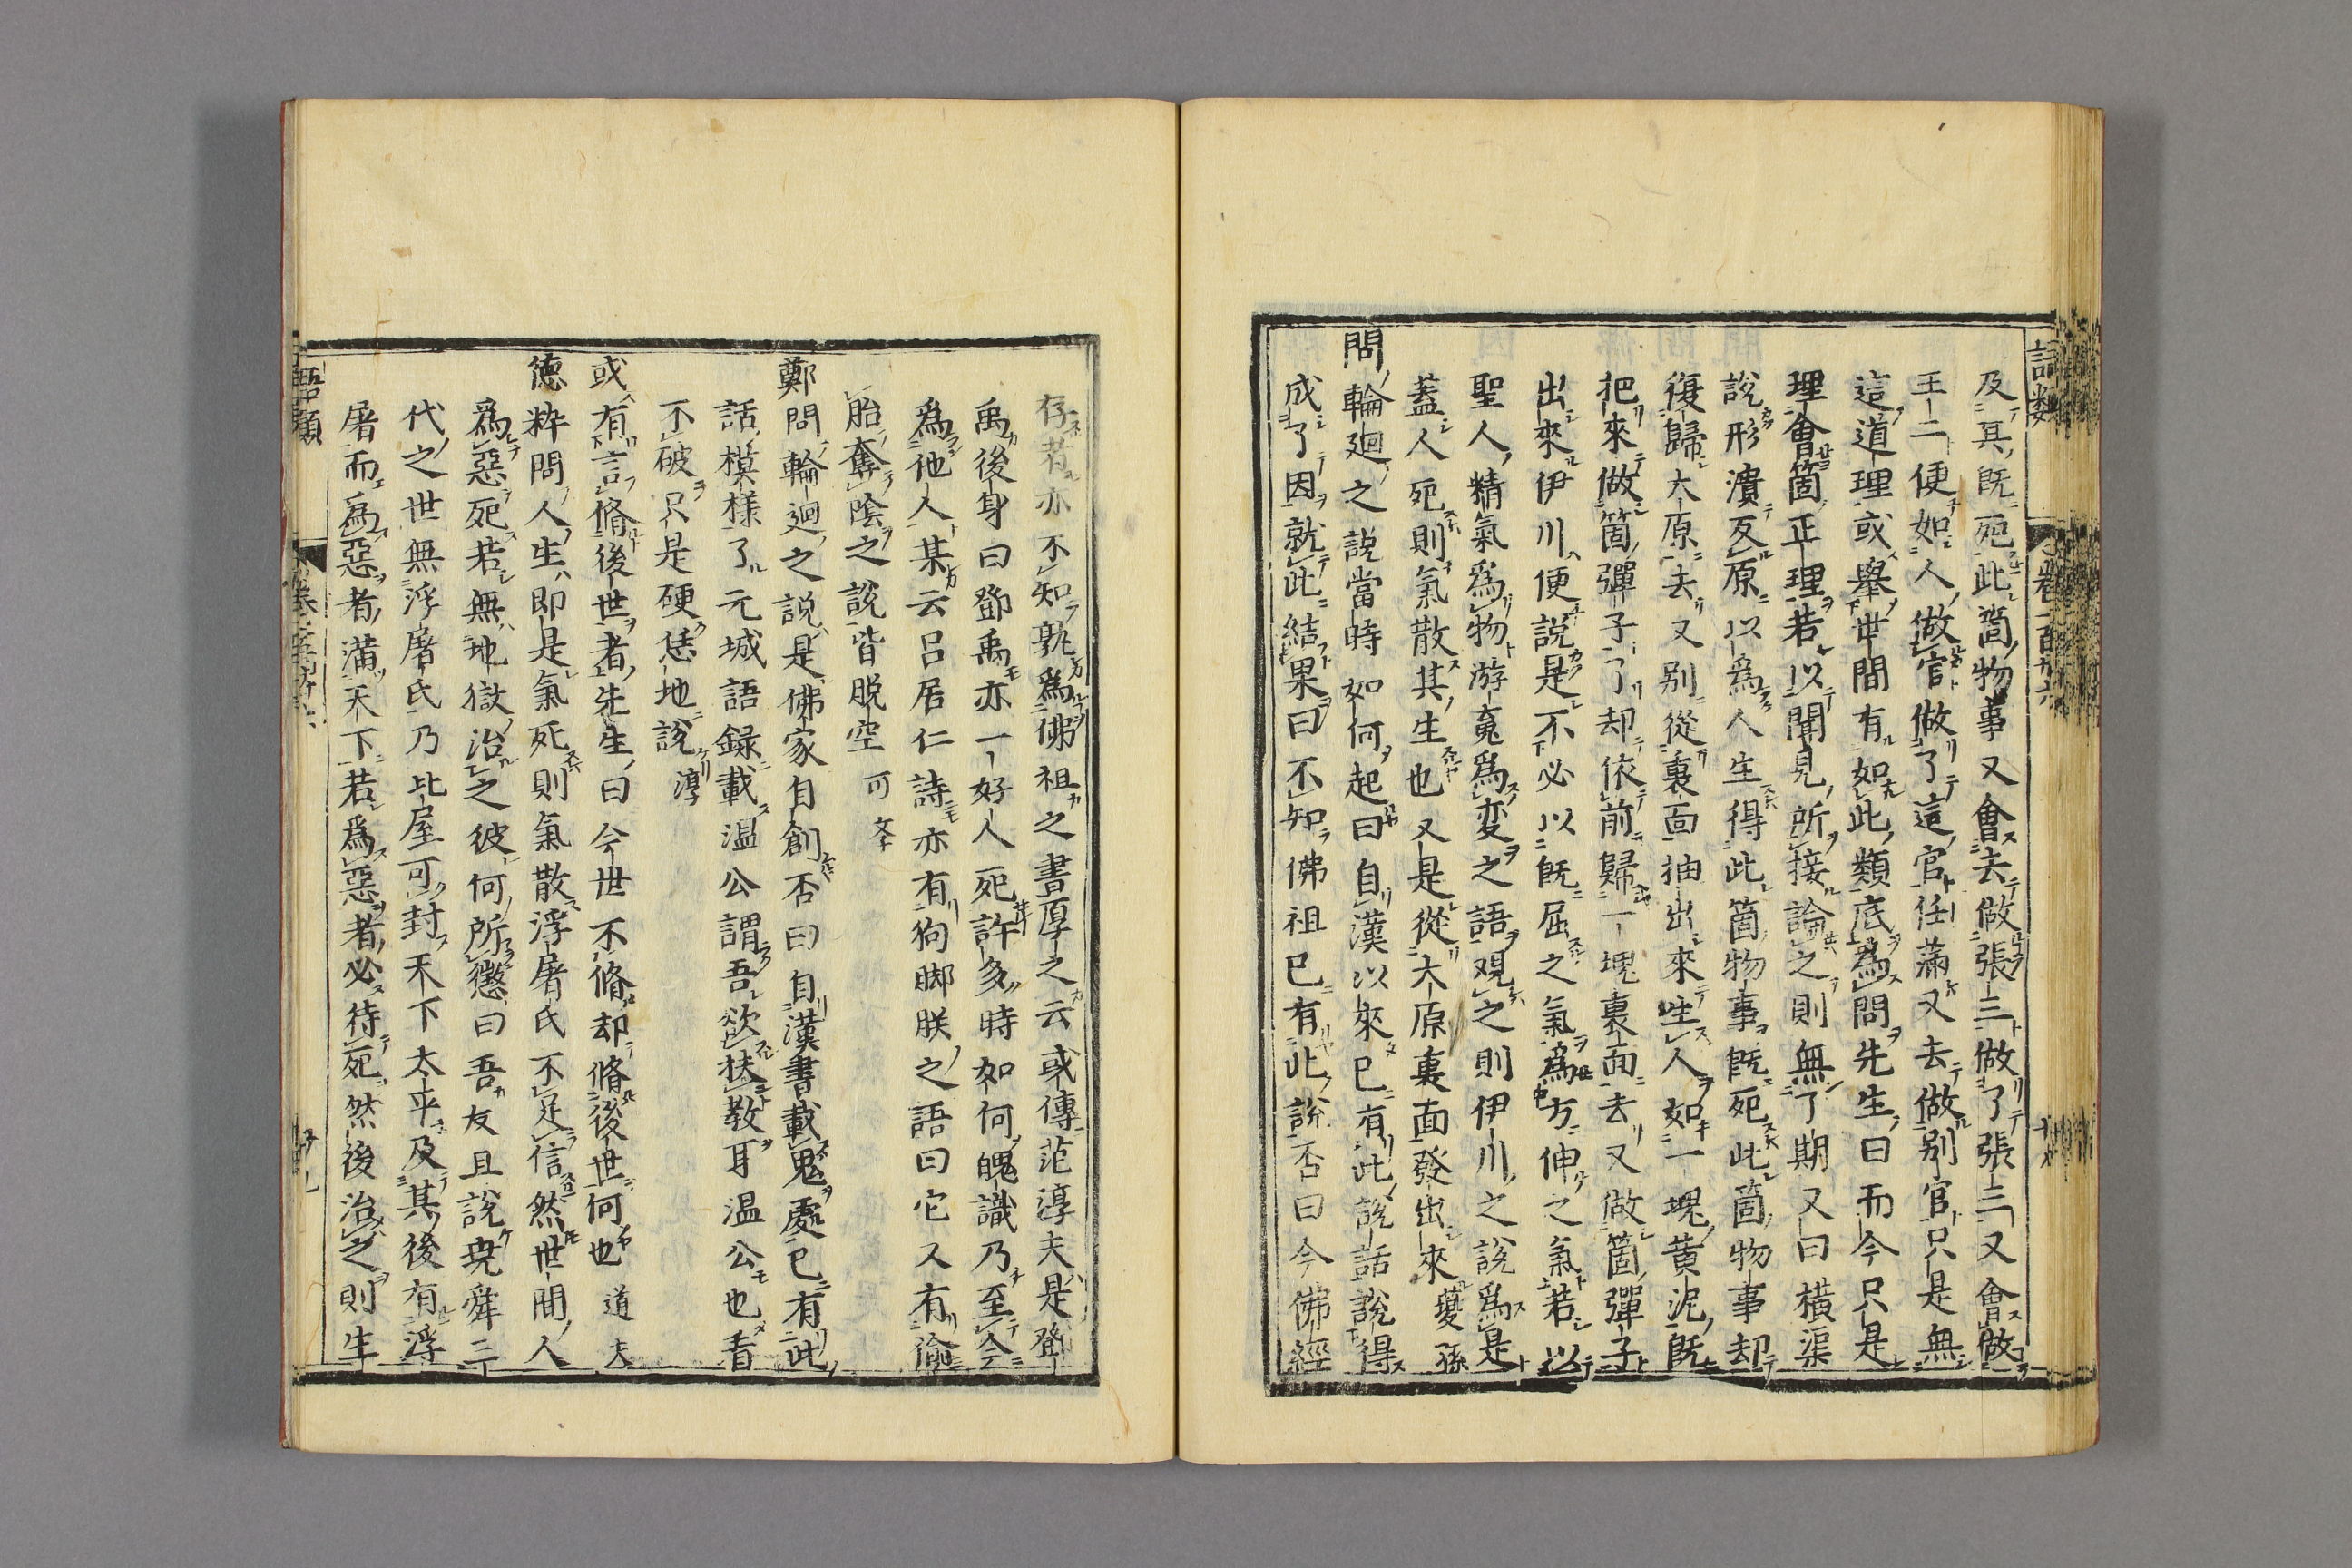 語類 卷一百二十六
及其既死此箇物事又會去做張三做了張三又會做
王二便如人做官做了這官任滿又去做别官只是無
這道理或舉世間有如此類底爲問先生曰而今只是
理會箇正理若以聞見所接論之則無了期又曰橫渠
說形潰反原以爲人生得此箇物事既死此箇物事却
復歸大原去又别從裏面抽出來生人如一塊黄泥既
把來做箇彈子了却依前歸一塊裏面去又做箇彈子
出來伊川便說是不必以既屈之氣爲方伸之氣若以
聖人精氣爲物游魂爲変之語观之則伊川之說爲是
蓋人死則氣散其生也又是從大原裏面發出來 夔孫
問輪廻之說當時如何起曰自漢以來已有此說話說得
成了因就此結果曰不知佛祖已有此說否曰今佛經
存者亦不知孰爲佛祖之書厚之云或傳范淳夫是鄧
禹後身曰鄧禹亦一好人死許多時如何魄識乃至今
爲他人某云呂居仁詩亦有狗脚朕之語曰它又有偷
胎奪陰之說皆脱空 可斈
鄭問輪廻之説是佛家自創否曰自漢書載鬼處已有此
話模樣了元城語録載温公謂吾欲扶教耳温公也看
不破只是硬恁地説 淳
或有言脩後世者先生曰今世不脩却脩後世何也 道夫
德粹問人生即是氣死則氣散浮屠氏不足信然世間人
爲惡死若無地獄治之彼何所懲曰吾友且説尭舜三
代之世無浮屠氏乃比屋可封天下太平及其後有浮
屠而爲惡者滿天下若爲惡者必待死然後治之則生
語類